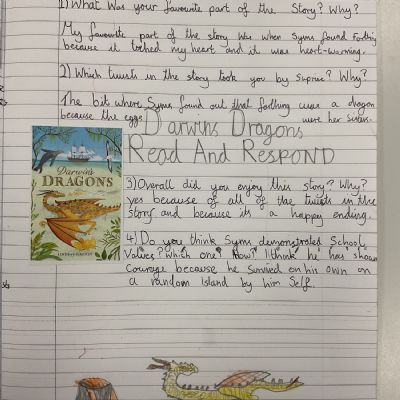 1) What Was your favourite part of the Story? Why?
My favourite part of the story was when Syms found Farthing
because it toched my heart and it was heart-warming.
2) Which twists in the story took you by suprise? Why?
The bit where Syms found out that farthing was a dragon
because the eggs were her
Darwins Dragons
Read And RESPOND
Darwin's
DRAGONS
3) Overall did you enjoy this story? Why?
yes because of all of the twists in the
story and because its a happy ending.
4) Do you think Syms demonstrated School
Values? Which one? How? I think he has shown
Courage because he survived on his own on
a random Island by him Self.